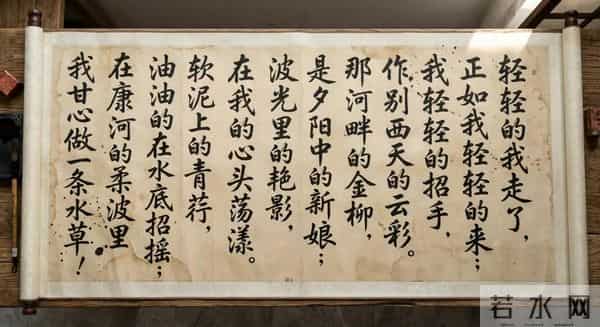 轻轻的我走了，
正如我轻轻的来；
我轻轻的招手，
作别西天的云彩。
那河畔的金柳，
是夕阳中的新娘；
波光里的艳影，
在我的心头荡漾。
软泥上的青荇，
油油的在水底招摇；
在康河的柔波里
我甘心做一条水草！
若水网